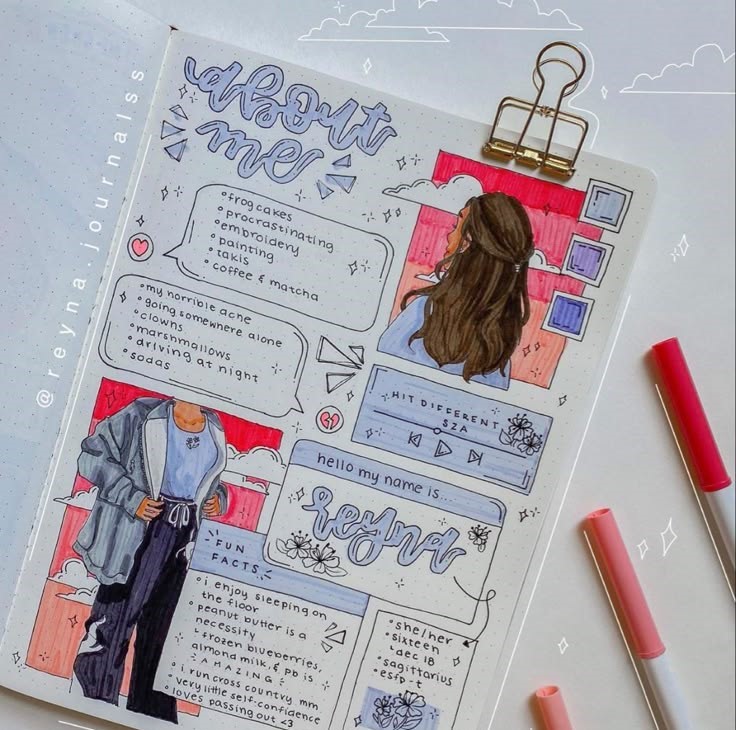 about
me
@reyna.journalss
• frog cakes
• procrastinating
• embroidery
• painting
• takis
• coffee & matcha
• my horrible acne
• going somewhere alone
• clowns
• marshmallows
• driving at night
• sodas
HIT DIFFERENT
SZA
hello my name is...
reyna
FUN
FACTS
• i enjoy sleeping on
the floor
• peanut butter is a
necessity
↳ frozen blueberries,
almond milk, & pb is
AMAZING
• i run cross country. mm
• very little self-confidence
• loves passing out <3
• she/her
• sixteen
↳ dec 18
• sagittarius
• esfp-t